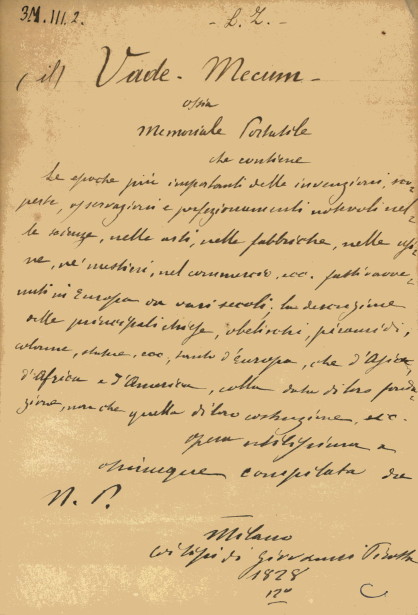 3M.III.2.
- L. Z. -
(il) Vade-Mecum -
ossia
Memoriale Portatile
che contiene
Le epoche più importanti delle invenzioni, sco-
perte, osservazioni e perfezionamenti notevoli nel-
le scienze, nelle arti, nelle fabbriche, nelle
ne' mestieri, nel commercio, ecc. fatti avve-
nuti in Europa da vari secoli, la descrizione
delle principali chiese, obelischi, piramidi,
colonne, statue, ecc, tanto d'Europa, che d'Asia,
d'Africa e d'America, colla data di loro fonda-
zione, non che quella di loro costruzione, ecc.
opera utilissima a
chiunque compilata da
N. P.
Milano
coi tipi di Giovanni Pirotta
1828
12º